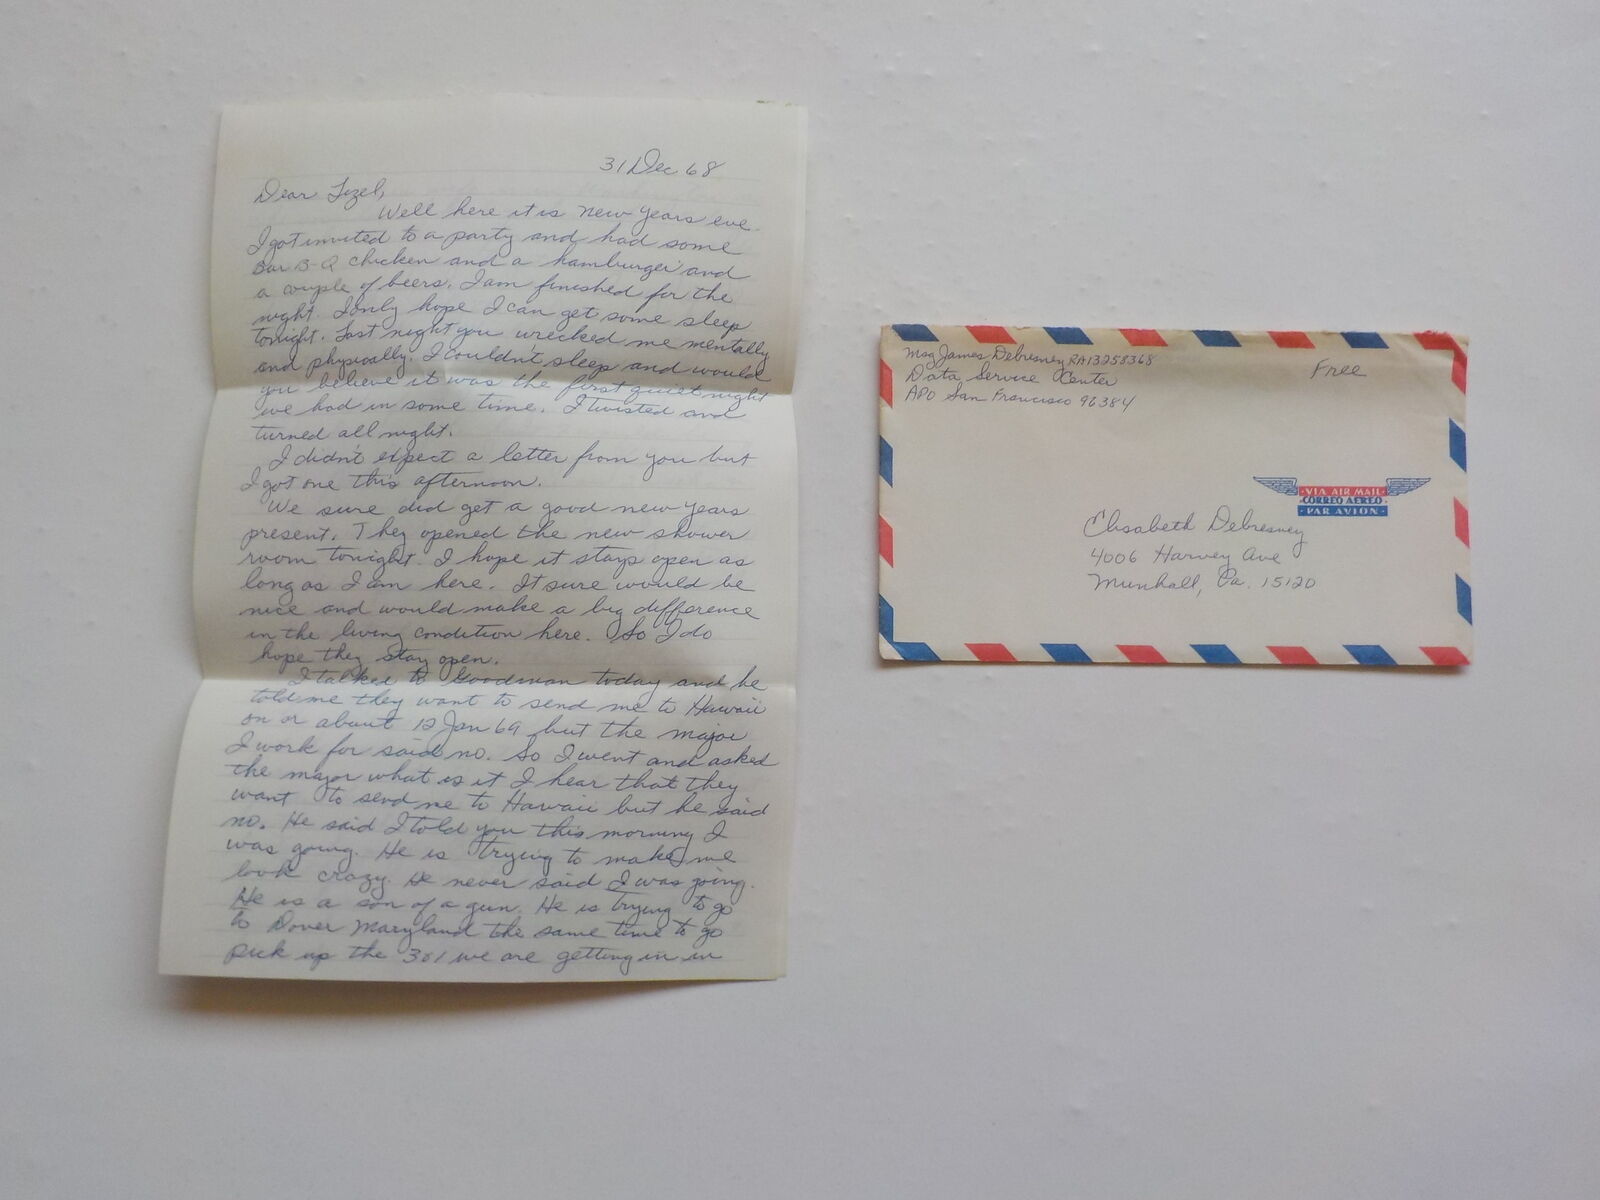 31 Dec 68
Dear Lizel,
Well here it is New Years eve.
I got invited to a party and had some
Bar B-Q chicken and a hamburger and
a couple of beers. I am finished for the
night. I only hope I can get some sleep
tonight. Last night you wrecked me mentally
and physically. I couldn't sleep and would
you believe it was the first quiet night
we had in some time. I twisted and
turned all night.
I didn't expect a letter from you but
I got one this afternoon.
We sure did get a good new years
present. They opened the new shower
room tonight. I hope it stays open as
long as I am here. It sure would be
nice and would make a big difference
in the living condition here. So I do
hope they stay open.
I talked to Goodman today and he
told me they want to send me to Hawaii
on or about 12 Jan 69 but the major
I work for said no. So I went and asked
the major what is it I hear that they
want to send me to Hawaii but he said
no. He said I told you this morning I
was going. He is trying to make me
look crazy. He never said I was going.
He is a son of a gun. He is trying to go
to Dover Maryland the same time to go
pick up the 301 we are getting in in
Msg James Debresney RA13258368
Data Service Center
APO San Francisco 96384
Free
VIA AIR MAIL
CORREO AEREO
PAR AVION
Elisabeth Debresney
4006 Harvey Ave
Munhall, Pa. 15120